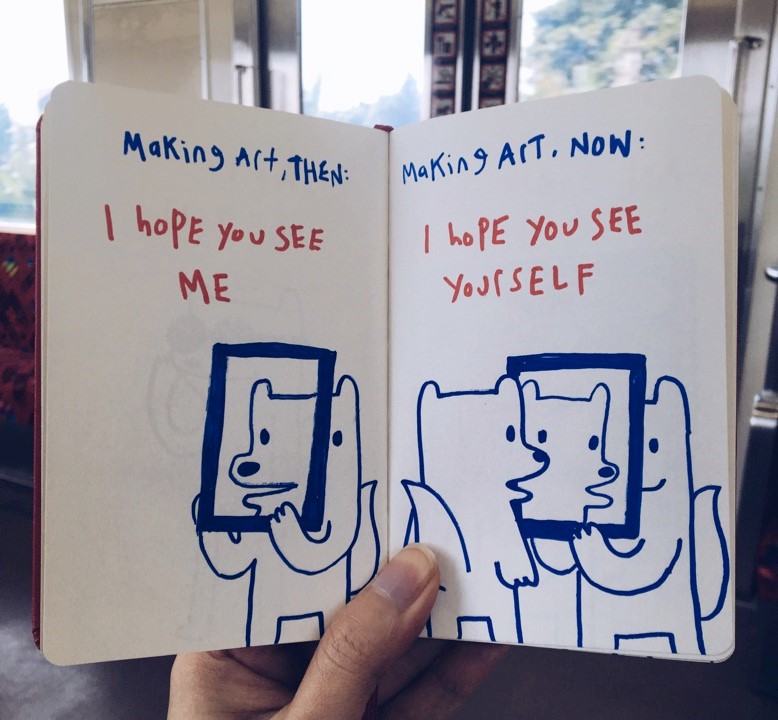 Making Art, THEN:
I hOPE YOU SEE
ME
Making ArT, NOW:
I hOPE YOU SEE
YOUrSELF